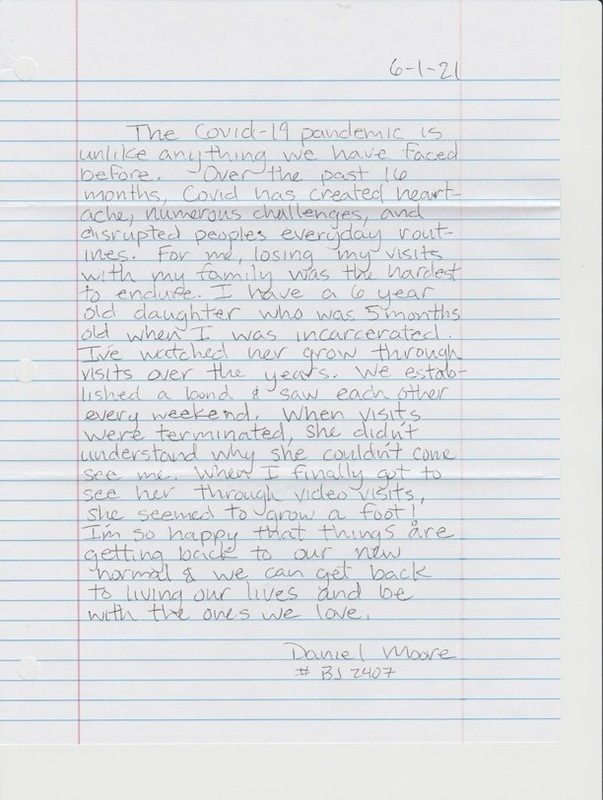 6-1-21
The Covid-19 pandemic is
unlike anything we have faced
before. Over the past 16
months, Covid has created heart-
ache, numerous challenges, and
disrupted peoples everyday rout-
ines. For me, losing my visits
with my family was the hardest
to endure. I have a 6 year
old daughter who was 5 months
old when I was incarcerated.
I've watched her grow through
visits over the years. We estab-
lished a bond & saw each other
every weekend. When visits
were terminated, she didn't
understand why she couldn't come
see me. When I finally got to
see her through video visits,
she seemed to grow a foot!
I'm so happy that things are
getting back to our new
normal & we can get back
to living our lives and be
with the ones we love.
Daniel Moore
# BJ 2407